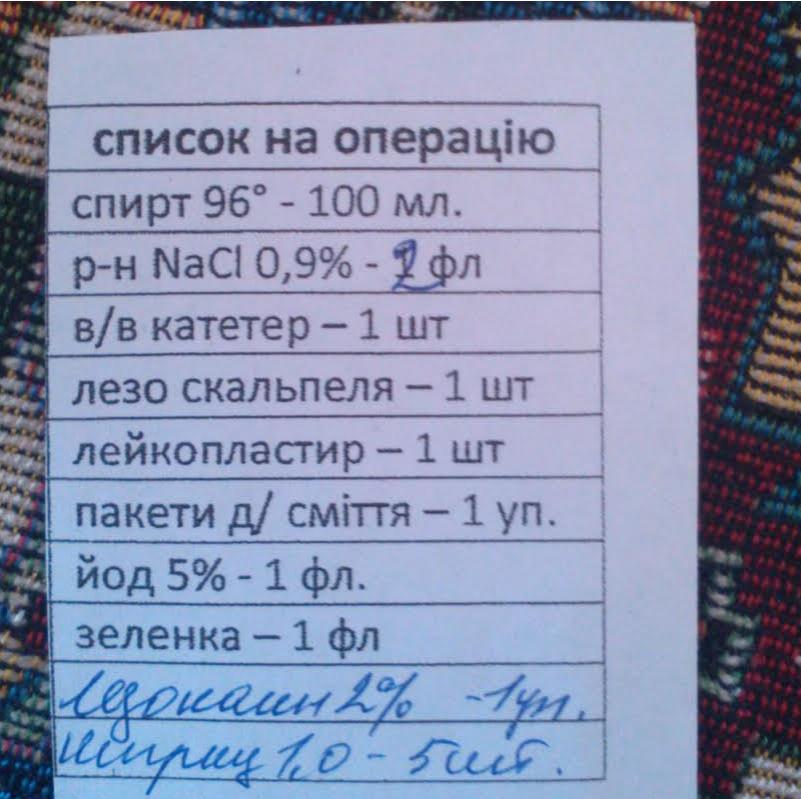 список на операцію
спирт 96° - 100 мл.
р-н NaCl 0,9% - 2 фл
в/в катетер – 1 шт
лезо скальпеля – 1 шт
лейкопластир – 1 шт
пакети д/ сміття – 1 уп.
йод 5% - 1 фл.
зеленка – 1 фл
Лідокаин 2% - 1 уп.
шприц 1,0 - 5 шт.